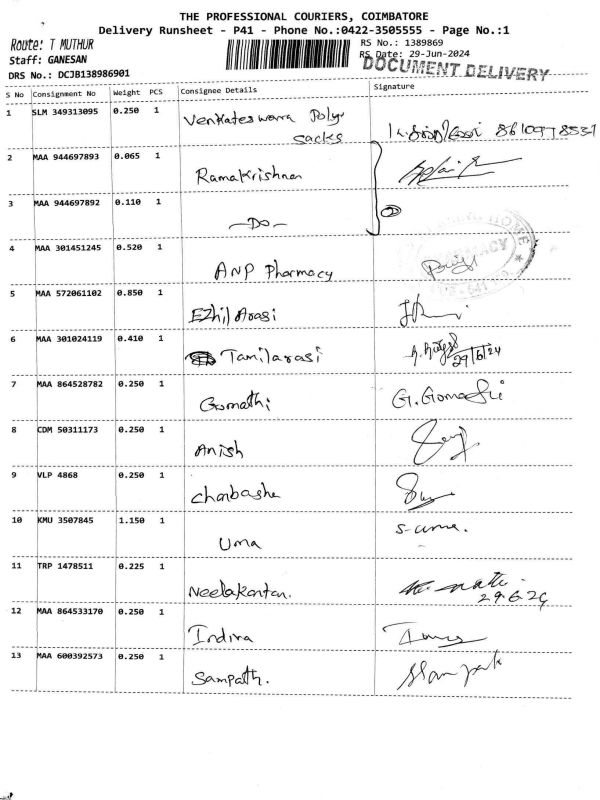 THE PROFESSIONAL COURIERS, COIMBATORE
Delivery Runsheet - P41 - Phone No.:0422-3505555 - Page No.:1
Route: T MUTHUR
RS No.: 1389869
Staff: GANESAN
RS Date: 29-Jun-2024
DOCUMENT DELIVERY
DRS No.: DCJB138986901
S No Consignment No Weight PCS Consignee Details Signature
1 SLM 349313095 0.250 1 Venkateswara Poly
sacks 8610978537
2 MAA 944697893 0.065 1
Ramakrishnan
3 MAA 944697892 0.110 1
-Do- 2
4 MAA 301451245 0.520 1
ANP Pharmacy
5 MAA 572061102 0.850 1
Ezhil Arasi
6 MAA 301024119 0.410 1
Tamilarasi 29/6/24
7 MAA 864528782 0.250 1
Gomathi G. Gomathi
8 CDM 50311173 0.250 1
Anish
9 VLP 4868 0.250 1
Chanbasha
10 KMU 3507845 1.150 1
Uma S-uma.
11 TRP 1478511 0.225 1
Neelakantan. 29.6.24
12 MAA 864533170 0.250 1
Indira
13 MAA 600392573 0.250 1
Sampath.